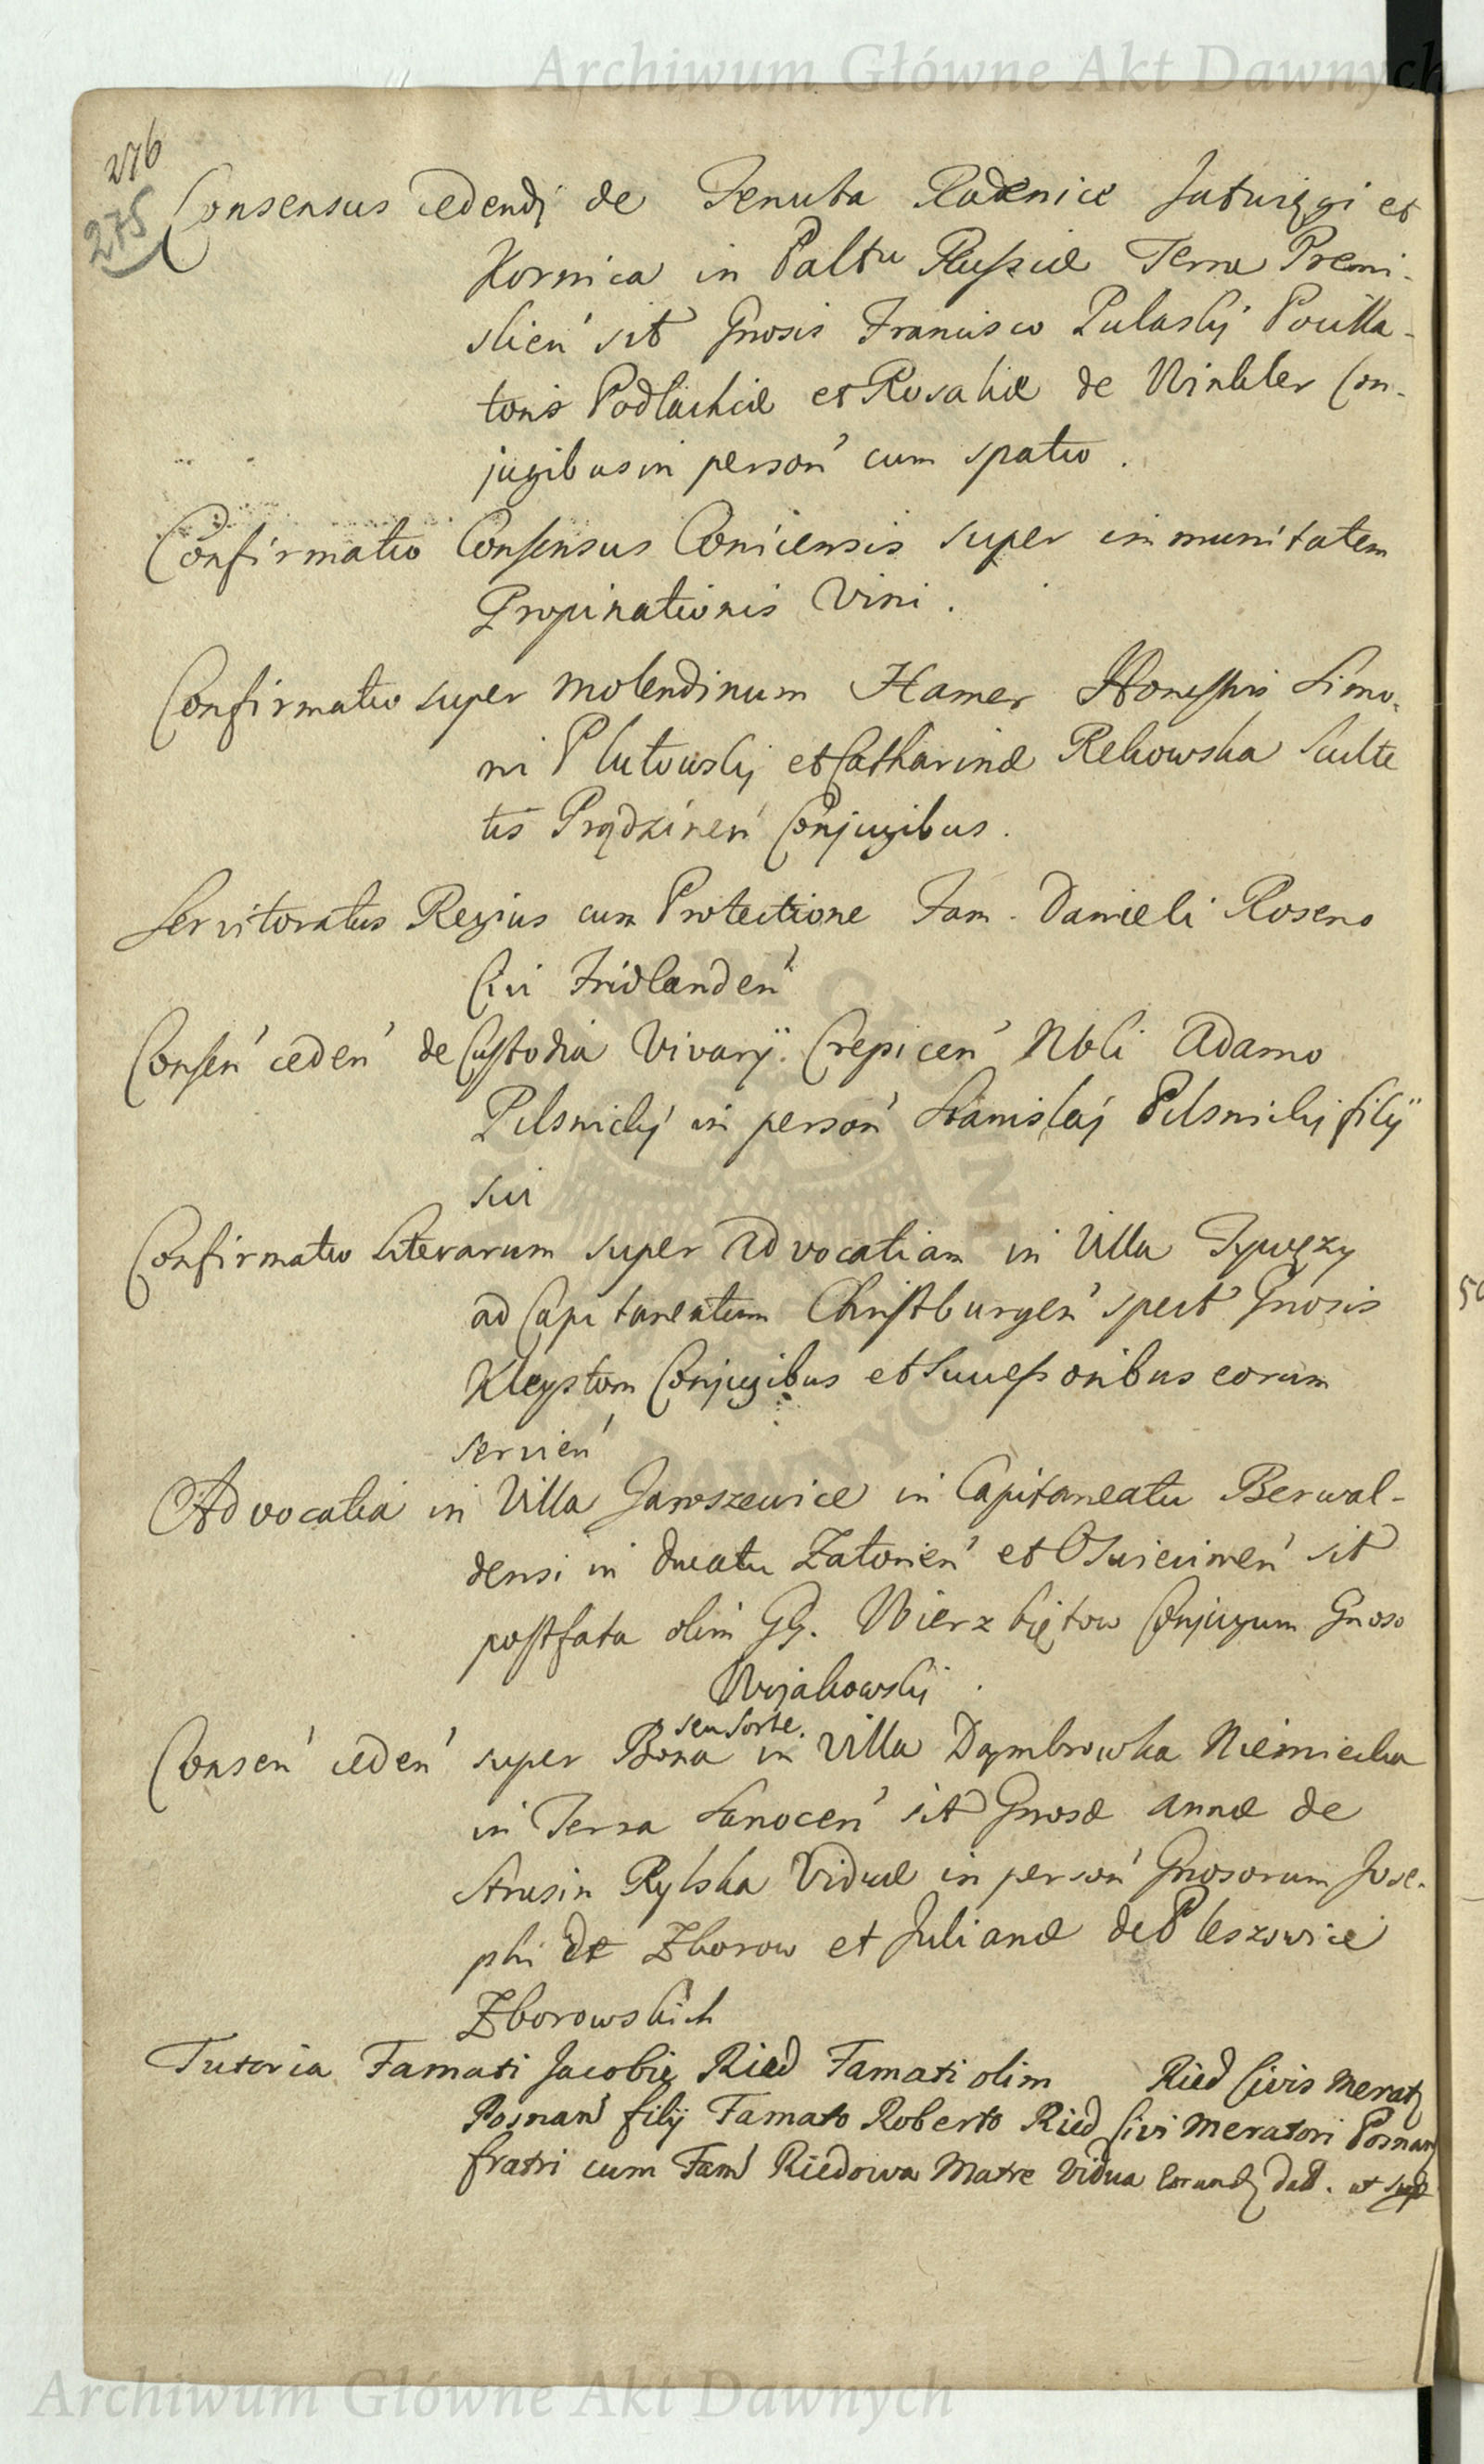 Archiwum Główne Akt Dawnych
276
275
Consensus cedendj de Tenuta Radenice Jatwięgi et
Kornica in Paltu Russiæ Terra Premi-
slien' sit Gnosis Francisco Pulaskÿ Pocilla-
toris Podlachiæ et Rosaliæ de Winkler Con-
jugibus in person' cum spatio.
Confirmatio Consensus Coniciensis super immunitatem
Propinationis Vini.
Confirmatio super molendinum Hamer Honestis Simo-
ni Plutowskj et Catharinæ Rekowska Sculte
tis Prądzinen' Conjugibus.
Servitoratus Regius cum Protectione Fam. Danieli Roseno
Civi Fridlanden'
Consen' ceden' de Custodia Vivarÿ Crepicen' Nbli Adamo
Pilsnickj in person' Stanislaj Pilsnickj filÿ
sui
Confirmatio Literarum super Advocatiam in Villa Tywęzy
ad Capitaneatum Christburgen' spect Gnosis
Kleystom Conjugibus et Successoribus eorum
servien'
Advocatia in Villa Jaroszewice in Capitaneatu Berwal-
densi in Ducatu Zatorien' et Oswiecimen' sit
post fata olim GG. Wierzbiętow Conjugum Gnoso
Wojakowskj.
seu sorte.
Consen' ceden' super Bona in Villa Dąmbrowka Niemiecka
in Terra Sanocen' sit Gnosæ Annæ de
Strusin Rylska Viduæ in person' Gnosorum Jose-
phi de Zborow et Julianæ de Pleszowice
Zborowskich
Tutoria Famati Jacobi Ried Famati olim Ried Civis Mercat
Posnan' filÿ Famato Roberto Ried Civi Mercatori Posnan
fratri cum Fam' Riedowa Matre Vidua dat. ut sup
Archiwum Główne Akt Dawnych